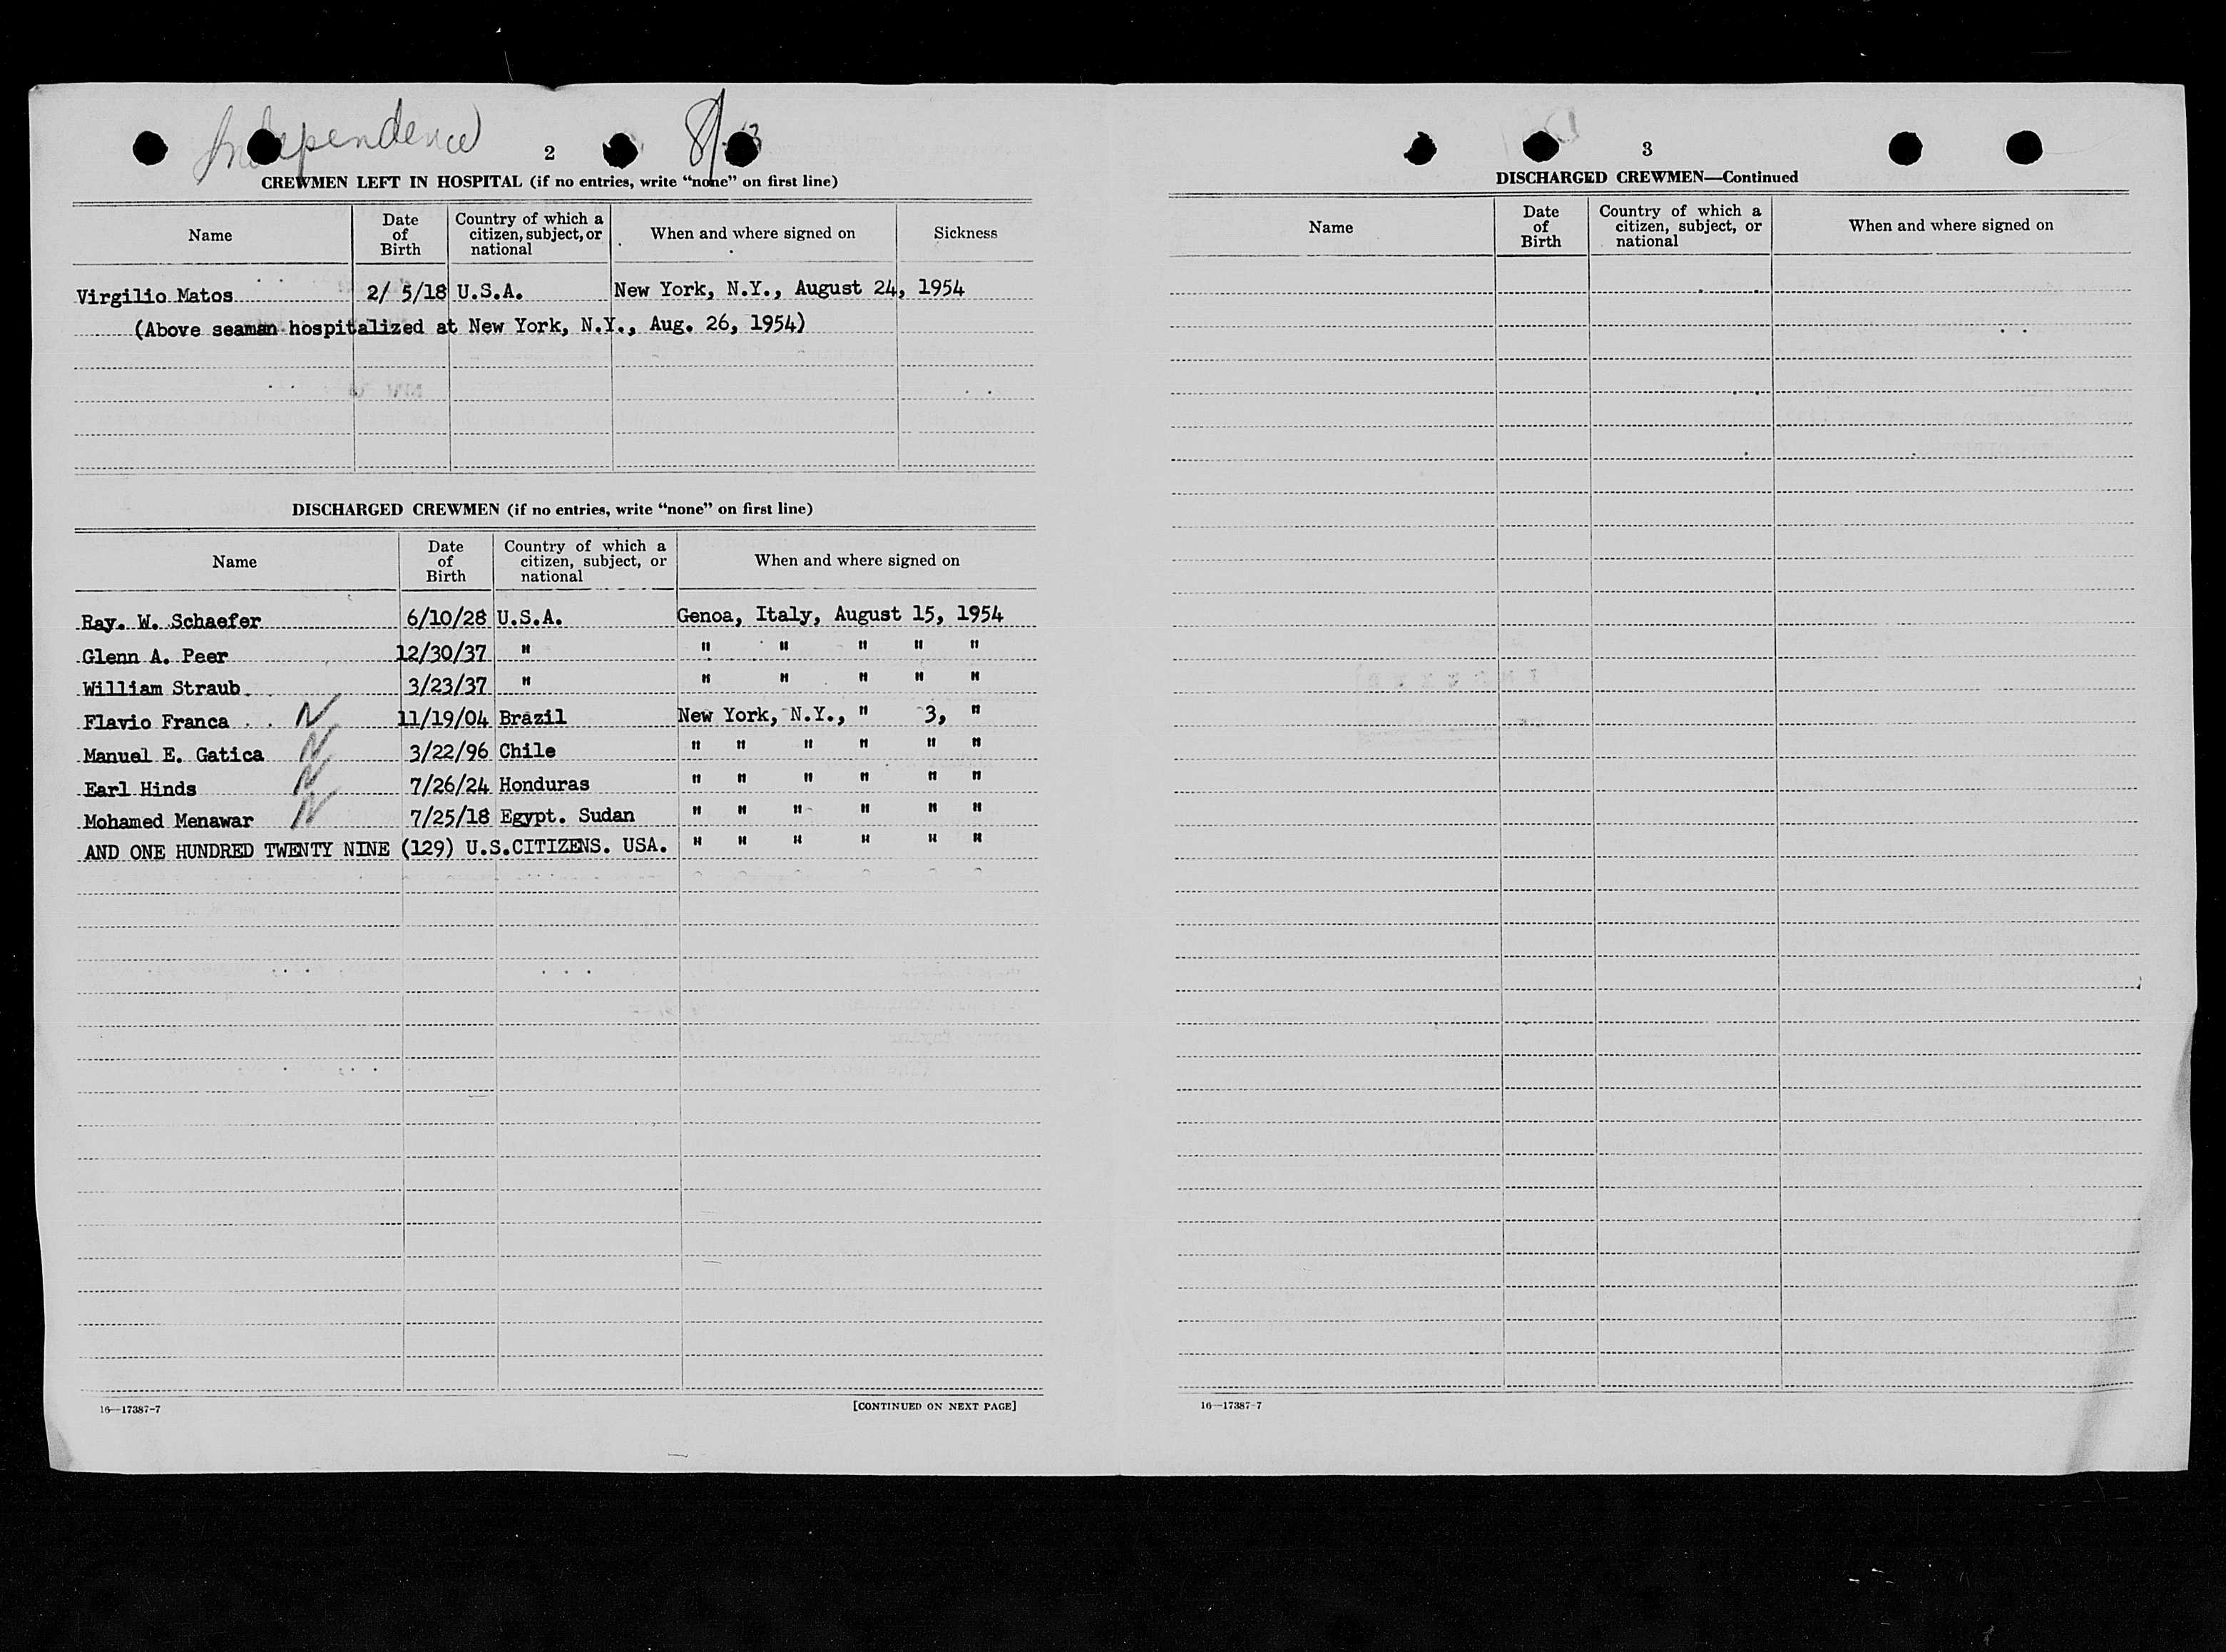 Independence
2
CREWMEN LEFT IN HOSPITAL (if no entries, write “none” on first line)
Name Date of Birth Country of which a citizen, subject, or national When and where signed on Sickness
Virgilio Matos 2/ 5/18 U.S.A. New York, N.Y., August 24, 1954
(Above seaman hospitalized at New York, N.Y., Aug. 26, 1954)
DISCHARGED CREWMEN (if no entries, write “none” on first line)
Name Date of Birth Country of which a citizen, subject, or national When and where signed on
Ray. W. Schaefer 6/10/28 U.S.A. Genoa, Italy, August 15, 1954
Glenn A. Peer 12/30/37 " " " " " "
William Straub 3/23/37 " " " " " "
Flavio Franca N 11/19/04 Brazil New York, N.Y., " 3, "
Manuel E. Gatica N 3/22/96 Chile " " " " " "
Earl Hinds N 7/26/24 Honduras " " " " " "
Mohamed Menawar N 7/25/18 Egypt. Sudan " " " " " "
AND ONE HUNDRED TWENTY NINE (129) U.S.CITIZENS. USA. " " " " " "
16—17387-7 [CONTINUED ON NEXT PAGE]
3
DISCHARGED CREWMEN—Continued
Name Date of Birth Country of which a citizen, subject, or national When and where signed on
16—17387-7